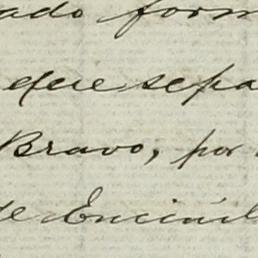 ado form
que sepa
Bravo, por
de Encinil